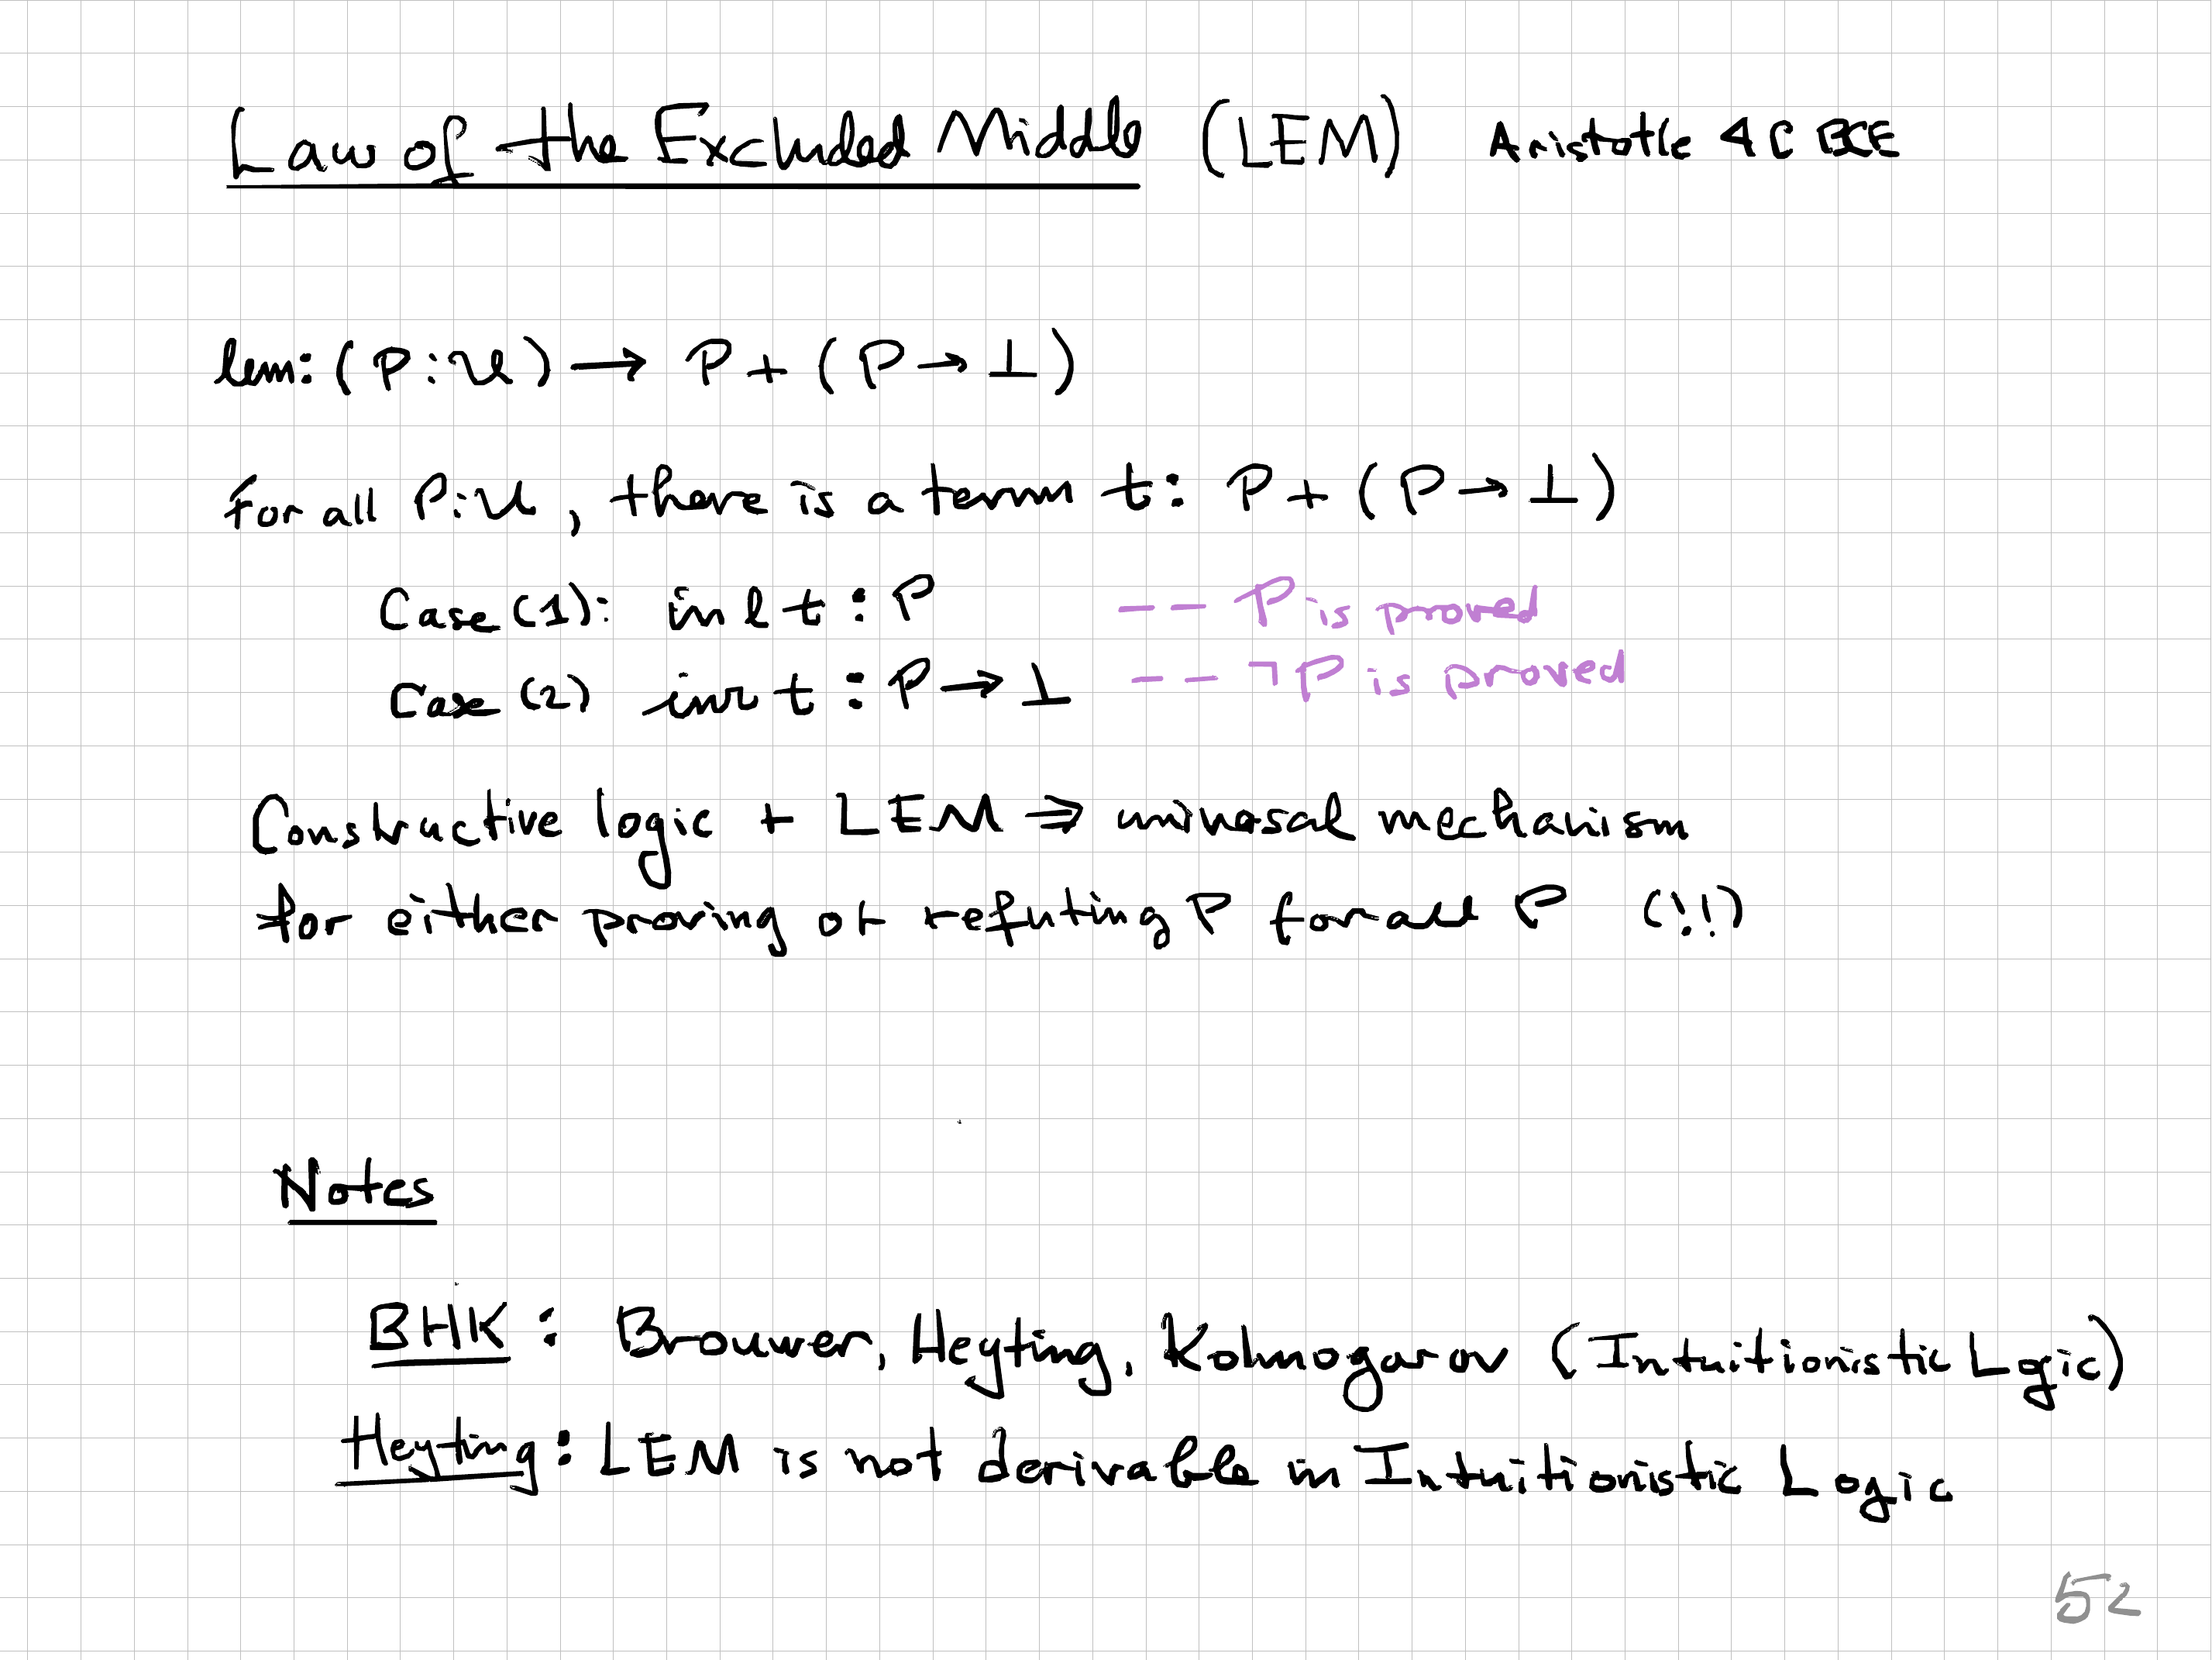 Law of the Excluded Middle (LEM) Aristotle 4C BCE
lem: (P:𝒰) → P + (P → ⊥)
For all P:𝒰, there is a term t: P + (P → ⊥)
Case (1): inl t : P -- P is proved
Case (2) inr t : P → ⊥ -- ¬P is proved
Constructive logic + LEM ⇒ universal mechanism
for either proving or refuting P for all P (!!)
Notes
BHK: Brouwer, Heyting, Kolmogarov (Intuitionistic Logic)
Heyting: LEM is not derivable in Intuitionistic Logic
52